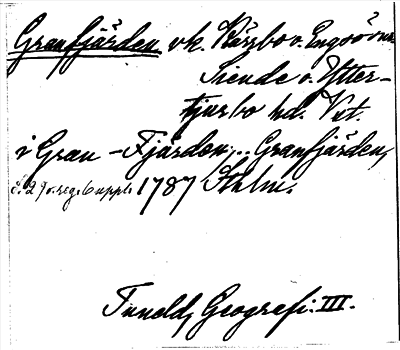 Granfjärden vk. Kärrbo o. Engsö önna
Siende o. Ytter-
tjurbo hd. Vstl.
i Gran-Fjärden,.. Granfjärden,
s. 29 o. reg. 6 uppl. 1787 Sthlm.
Tuneld, Geografi. III.